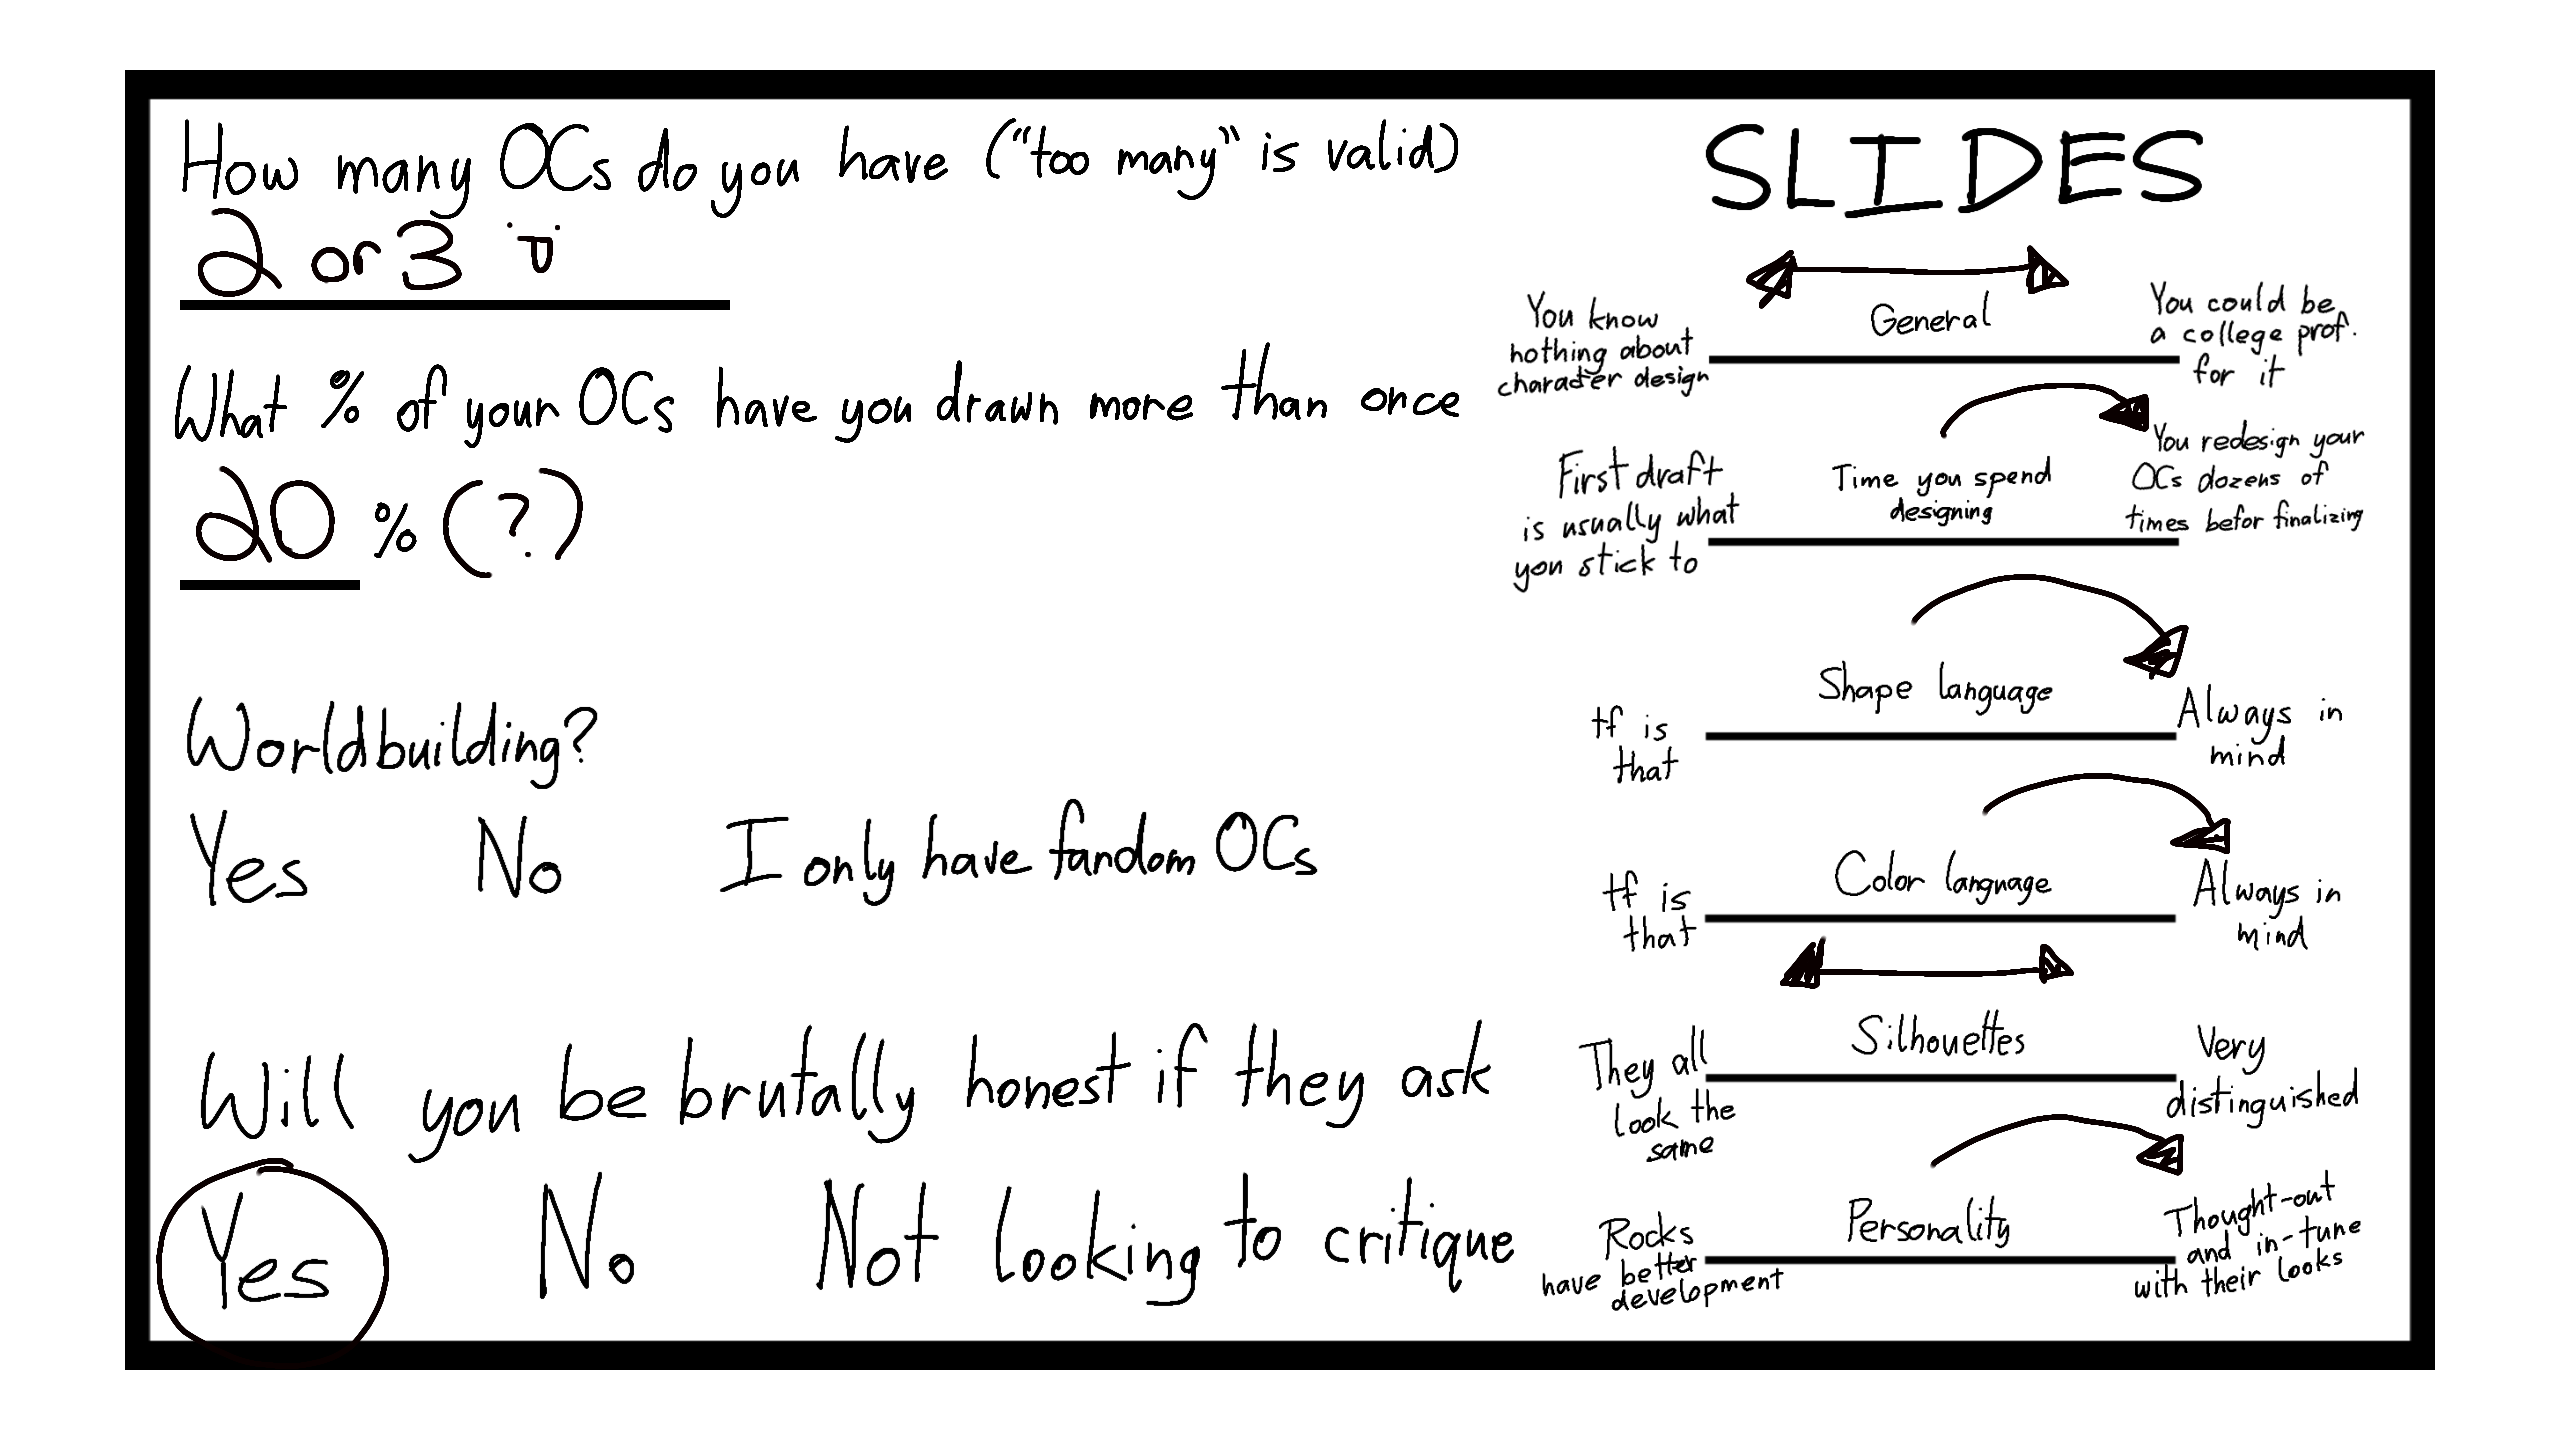 How many OCs do you have ("too many" is valid)
2 or 3
What % of your OCs have you drawn more than once
20 % (?)
Worldbuilding?
Yes No I only have fandom OCs
Will you be brutally honest if they ask
Yes No Not looking to critique
SLIDES
You know
nothing about
character design
General
You could be
a college prof.
for it
First draft
is usually what
you stick to
Time you spend
designing
You redesign your
OCs dozens of
times befor finalizing
tf is
that
Shape language
Always in
mind
tf is
that
Color language
Always in
mind
They all
look the
same
Silhouettes
Very
distinguished
Rocks
have better
development
Personality
Thought-out
and in-tune
with their looks